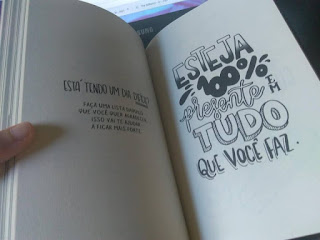 ESTÁ TENDO UM DIA DIFÍCIL?
FAÇA UMA LISTA
QUE VOCÊ QUER
ISSO VAI TE AJUDAR
A FICAR MAIS FORTE.
ESTEJA
100%
presente EM
TUDO
QUE VOCÊ FAZ.